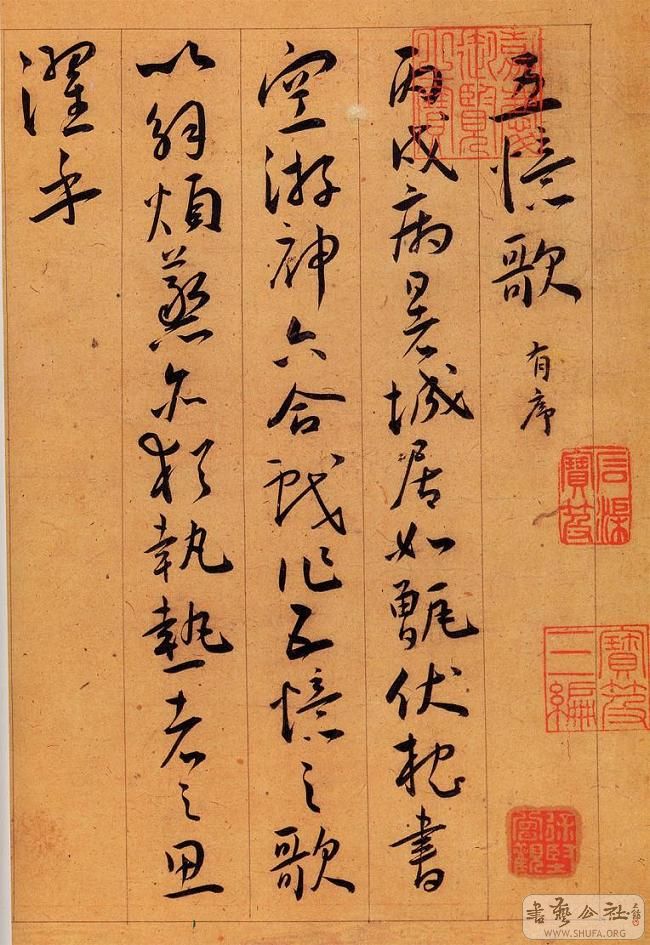 五憶歌 有序
丙戌病暑城居如甑伏枕書
空游神六合戲作五憶之歌
以解煩蒸亦猶執熱者之思
濯手
嘉慶御覽之寶
石渠寶笈
寶笈三編
書藝公社
WWW.SHUFA.ORG